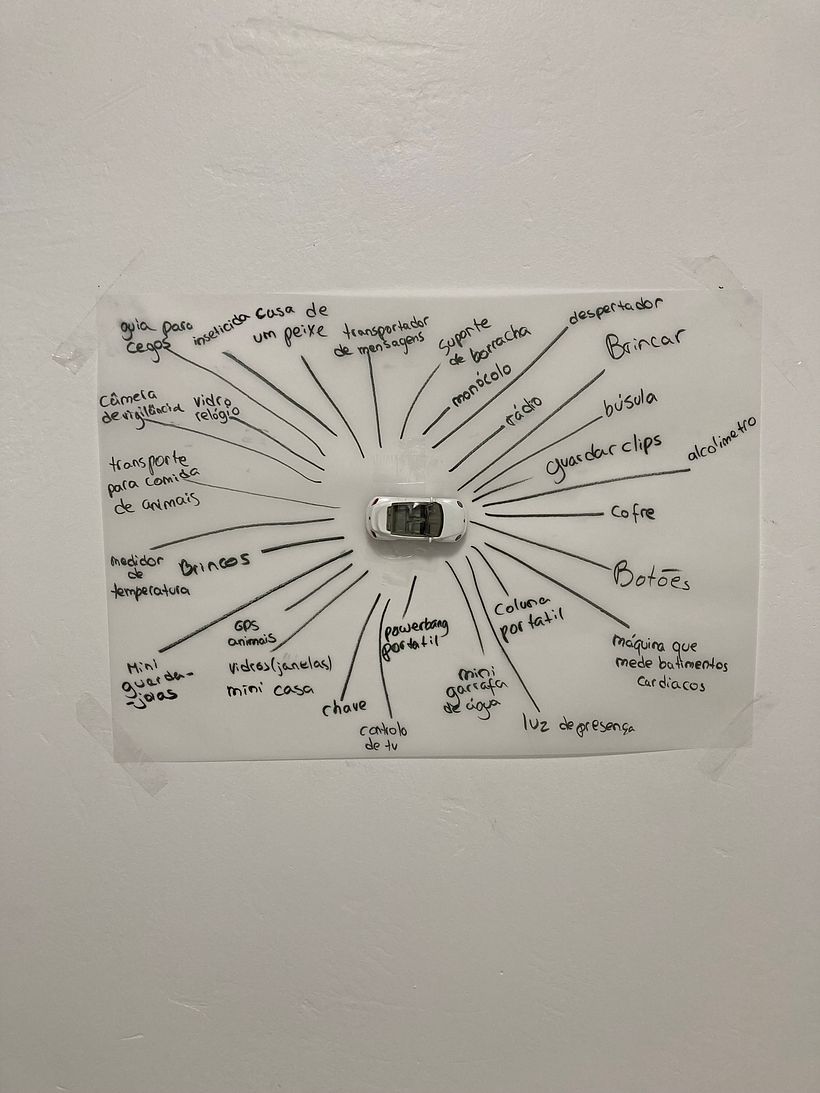 guia para
cegos
inseticida
casa de
um peixe
transportador
de mensagens
suporte
de borracha
monócolo
despertador
Brincar
rádio
búsula
guardar clips
alcolimetro
cofre
Botões
máquina que
mede batimentos
cardiacos
coluna
portatil
luz de presença
mini
garrafa
de água
powerbang
portatil
controlo
de tv
chave
vidros(janelas)
mini casa
GPS
animais
Mini
guarda-
-joias
Brincos
medidor
de
temperatura
transporte
para comida
de animais
câmera
de vigilância
vidro
relógio